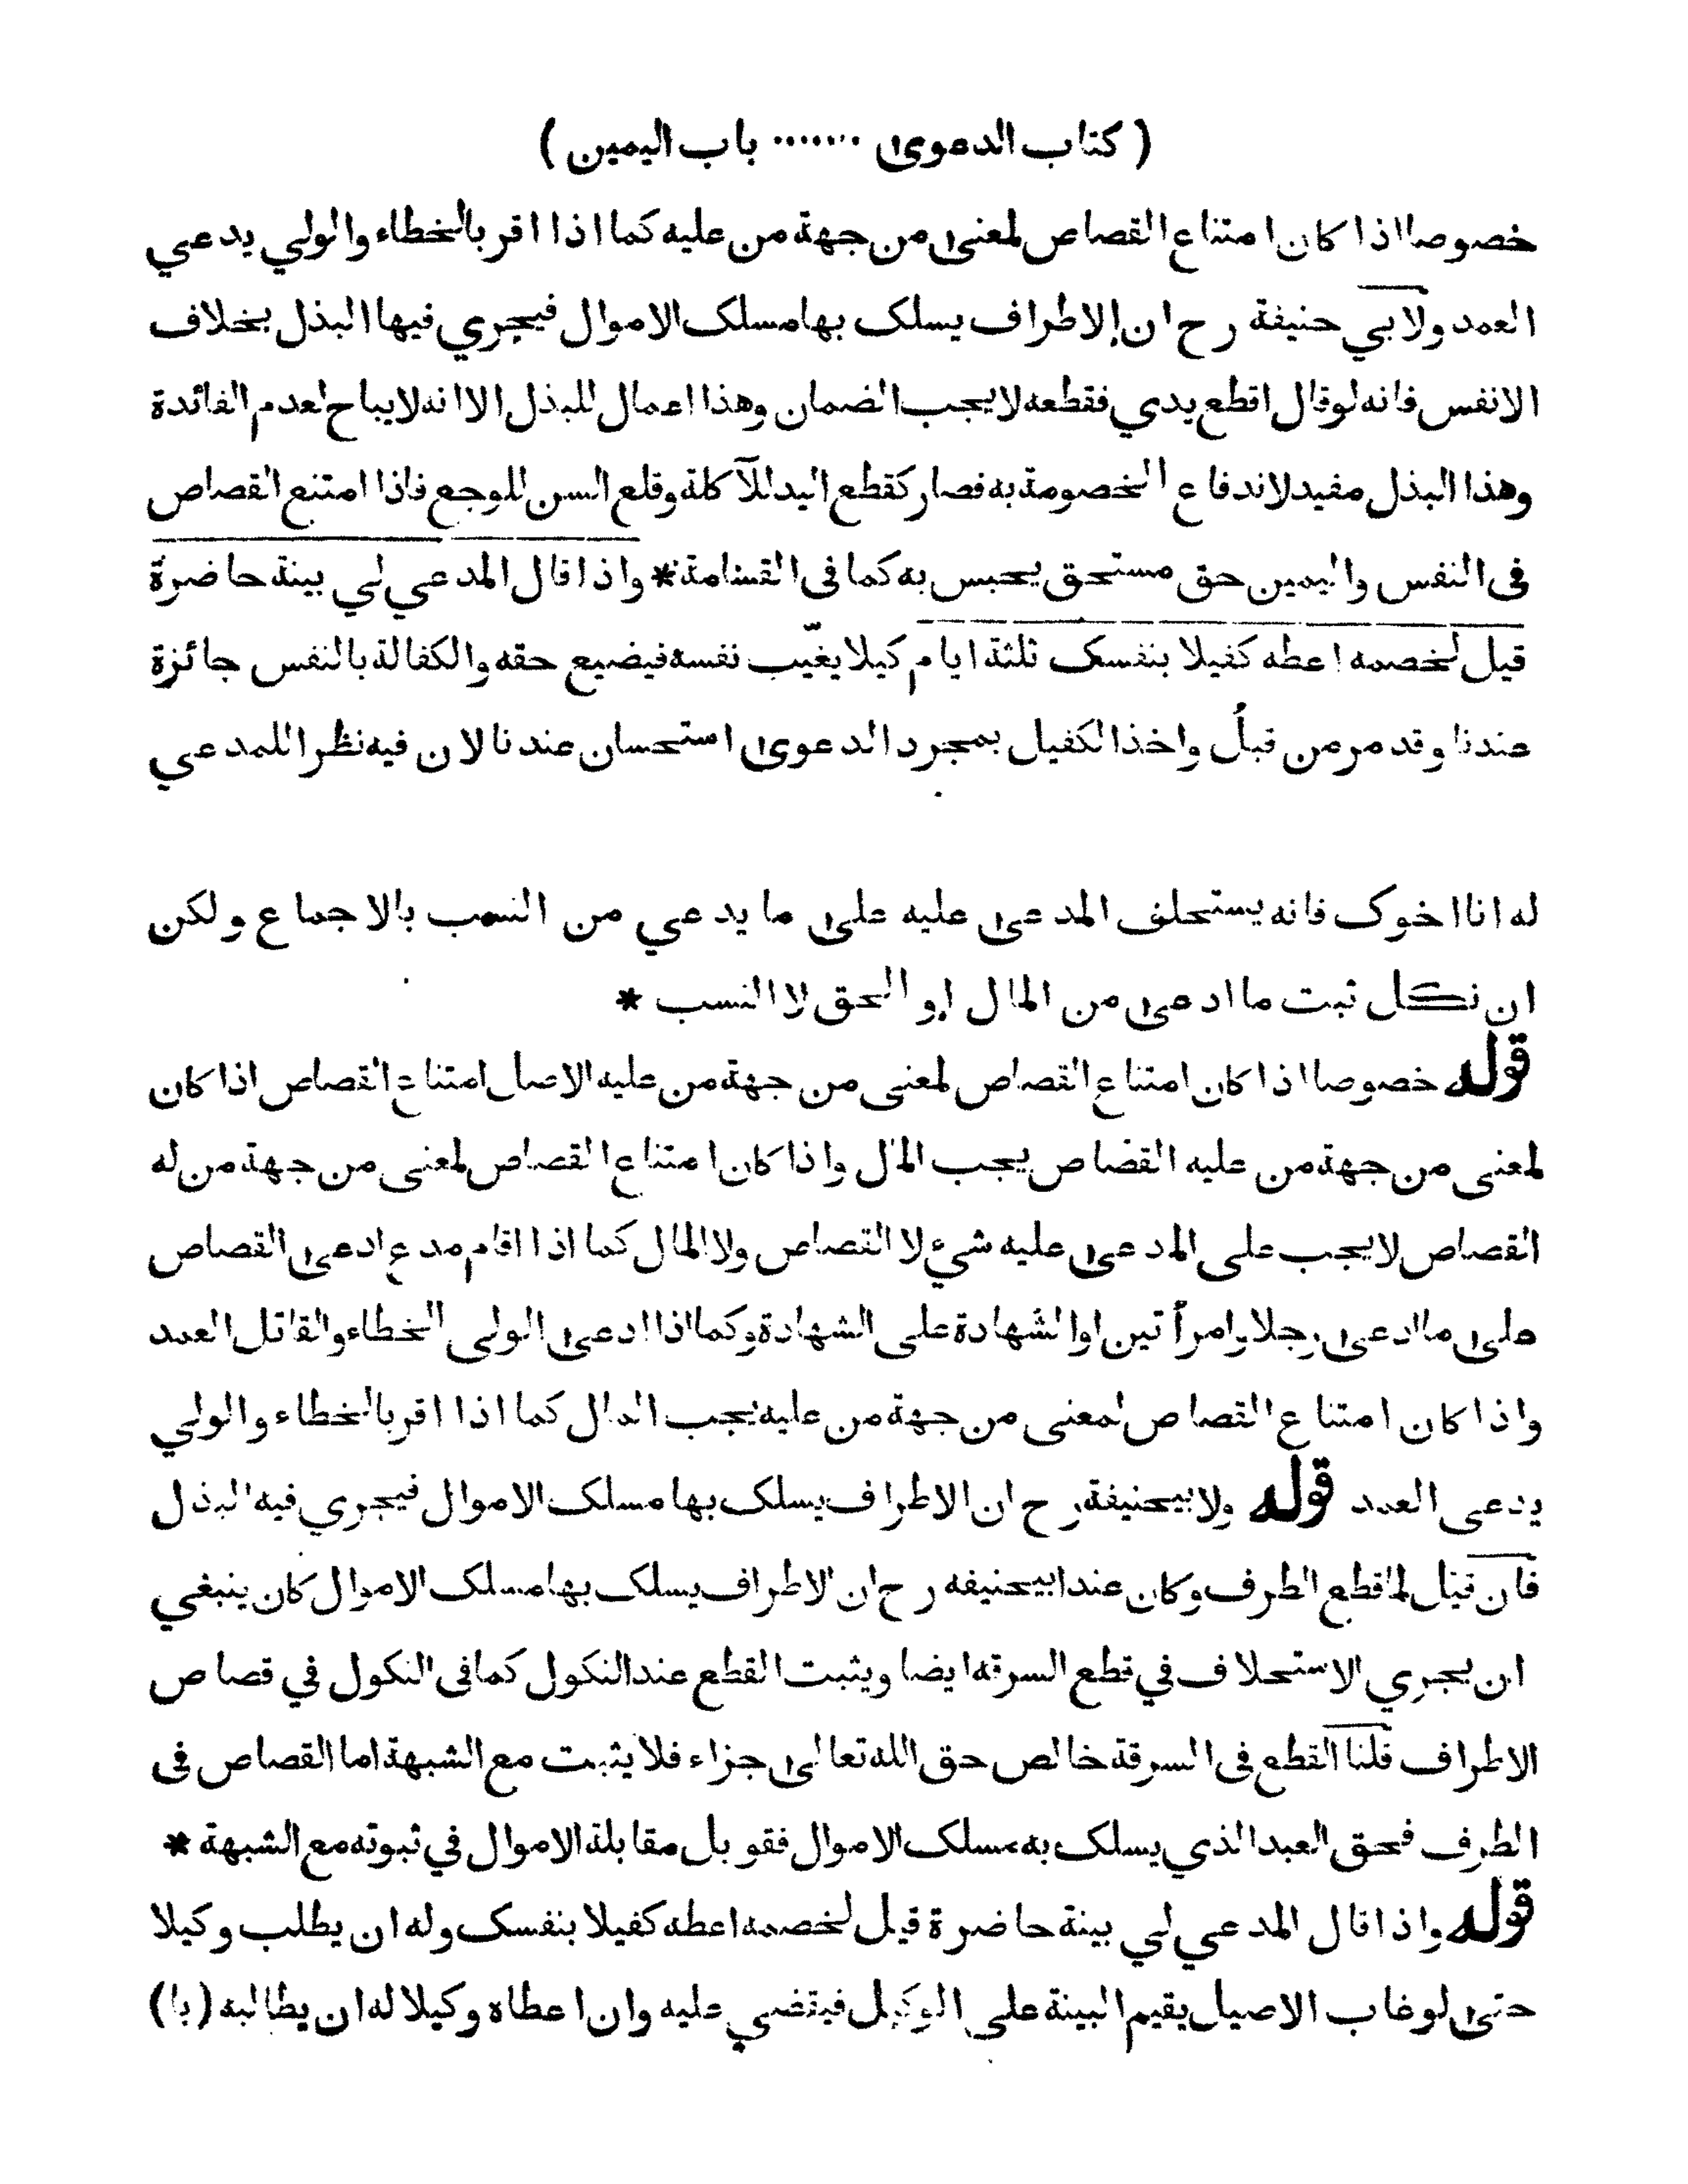 ( كتاب الدعوى ....... باب اليمين )
خصوصا اذا كان امتناع القصاص لمعنى من جهة من عليه كما اذا اقر بالخطاء والولي يدعي
العمد ولابي حنيفة رح ان الاطراف يسلك بها مسلك الاموال فيجري فيها البذل بخلاف
الانفس فانه لو قال اقطع يدي فقطعه لا يجب الضمان وهذا اعمال للبذل الا انه لا يباح لعدم الفائدة
وهذا البذل مفيد لاندفاع الخصومة به فصار كقطع اليد للآكلة وقلع السن للوجع فاذا امتنع القصاص
فى النفس واليمين حق مستحق يحبس به كما فى القسامة * واذا قال المدعي لي بينة حاضرة
قيل لخصمه اعطه كفيلا بنفسك ثلثة ايام كيلا يغيّب نفسه فيضيع حقه والكفالة بالنفس جائزة
عندنا وقد مر من قبلُ واخذ الكفيل بمجرد الدعوى استحسان عندنا لان فيه نظرا للمدعي
له انا اخوك فانه يستحلف المدعى عليه على ما يدعي من النسب بالاجماع ولكن
ان نكل ثبت ما ادعى من المال او الحق لا النسب *
قوله خصوصا اذا كان امتناع القصاص لمعنى من جهة من عليه الاصل امتناع القصاص اذا كان
لمعنى من جهة من عليه القصاص يجب المال واذا كان امتناع القصاص لمعنى من جهة من له
القصاص لا يجب على المدعى عليه شيء لا القصاص ولا المال كما اذا اقام مدع ادعى القصاص
على ما ادعى رجلا وامرأتين او الشهادة على الشهادة وكما اذا ادعى الولى الخطاء والقاتل العمد
واذا كان امتناع القصاص لمعنى من جهة من عليه يجب المال كما اذا اقر بالخطاء والولي
يدعى العمد قوله ولابيحنيفة رح ان الاطراف يسلك بها مسلك الاموال فيجري فيه البذل
فان قيل لما قطع الطرف وكان عند ابيحنيفه رح ان الاطراف يسلك بها مسلك الاموال كان ينبغي
ان يجري الاستحلاف في قطع السرقه ايضا ويثبت القطع عند النكول كما فى النكول في قصاص
الاطراف قلنا القطع فى السرقة خالص حق الله تعالى جزاء فلا يثبت مع الشبهة اما القصاص فى
الطرف فحق العبد الذي يسلك به مسلك الاموال فقوبل مقابلة الاموال في ثبوته مع الشبهة *
قوله واذا قال المدعي لي بينة حاضرة قيل لخصمه اعطه كفيلا بنفسك وله ان يطلب وكيلا
حتى لو غاب الاصيل يقيم البينة على الوكيل فيقضي عليه وان اعطاه وكيلا له ان يطالبه (با)